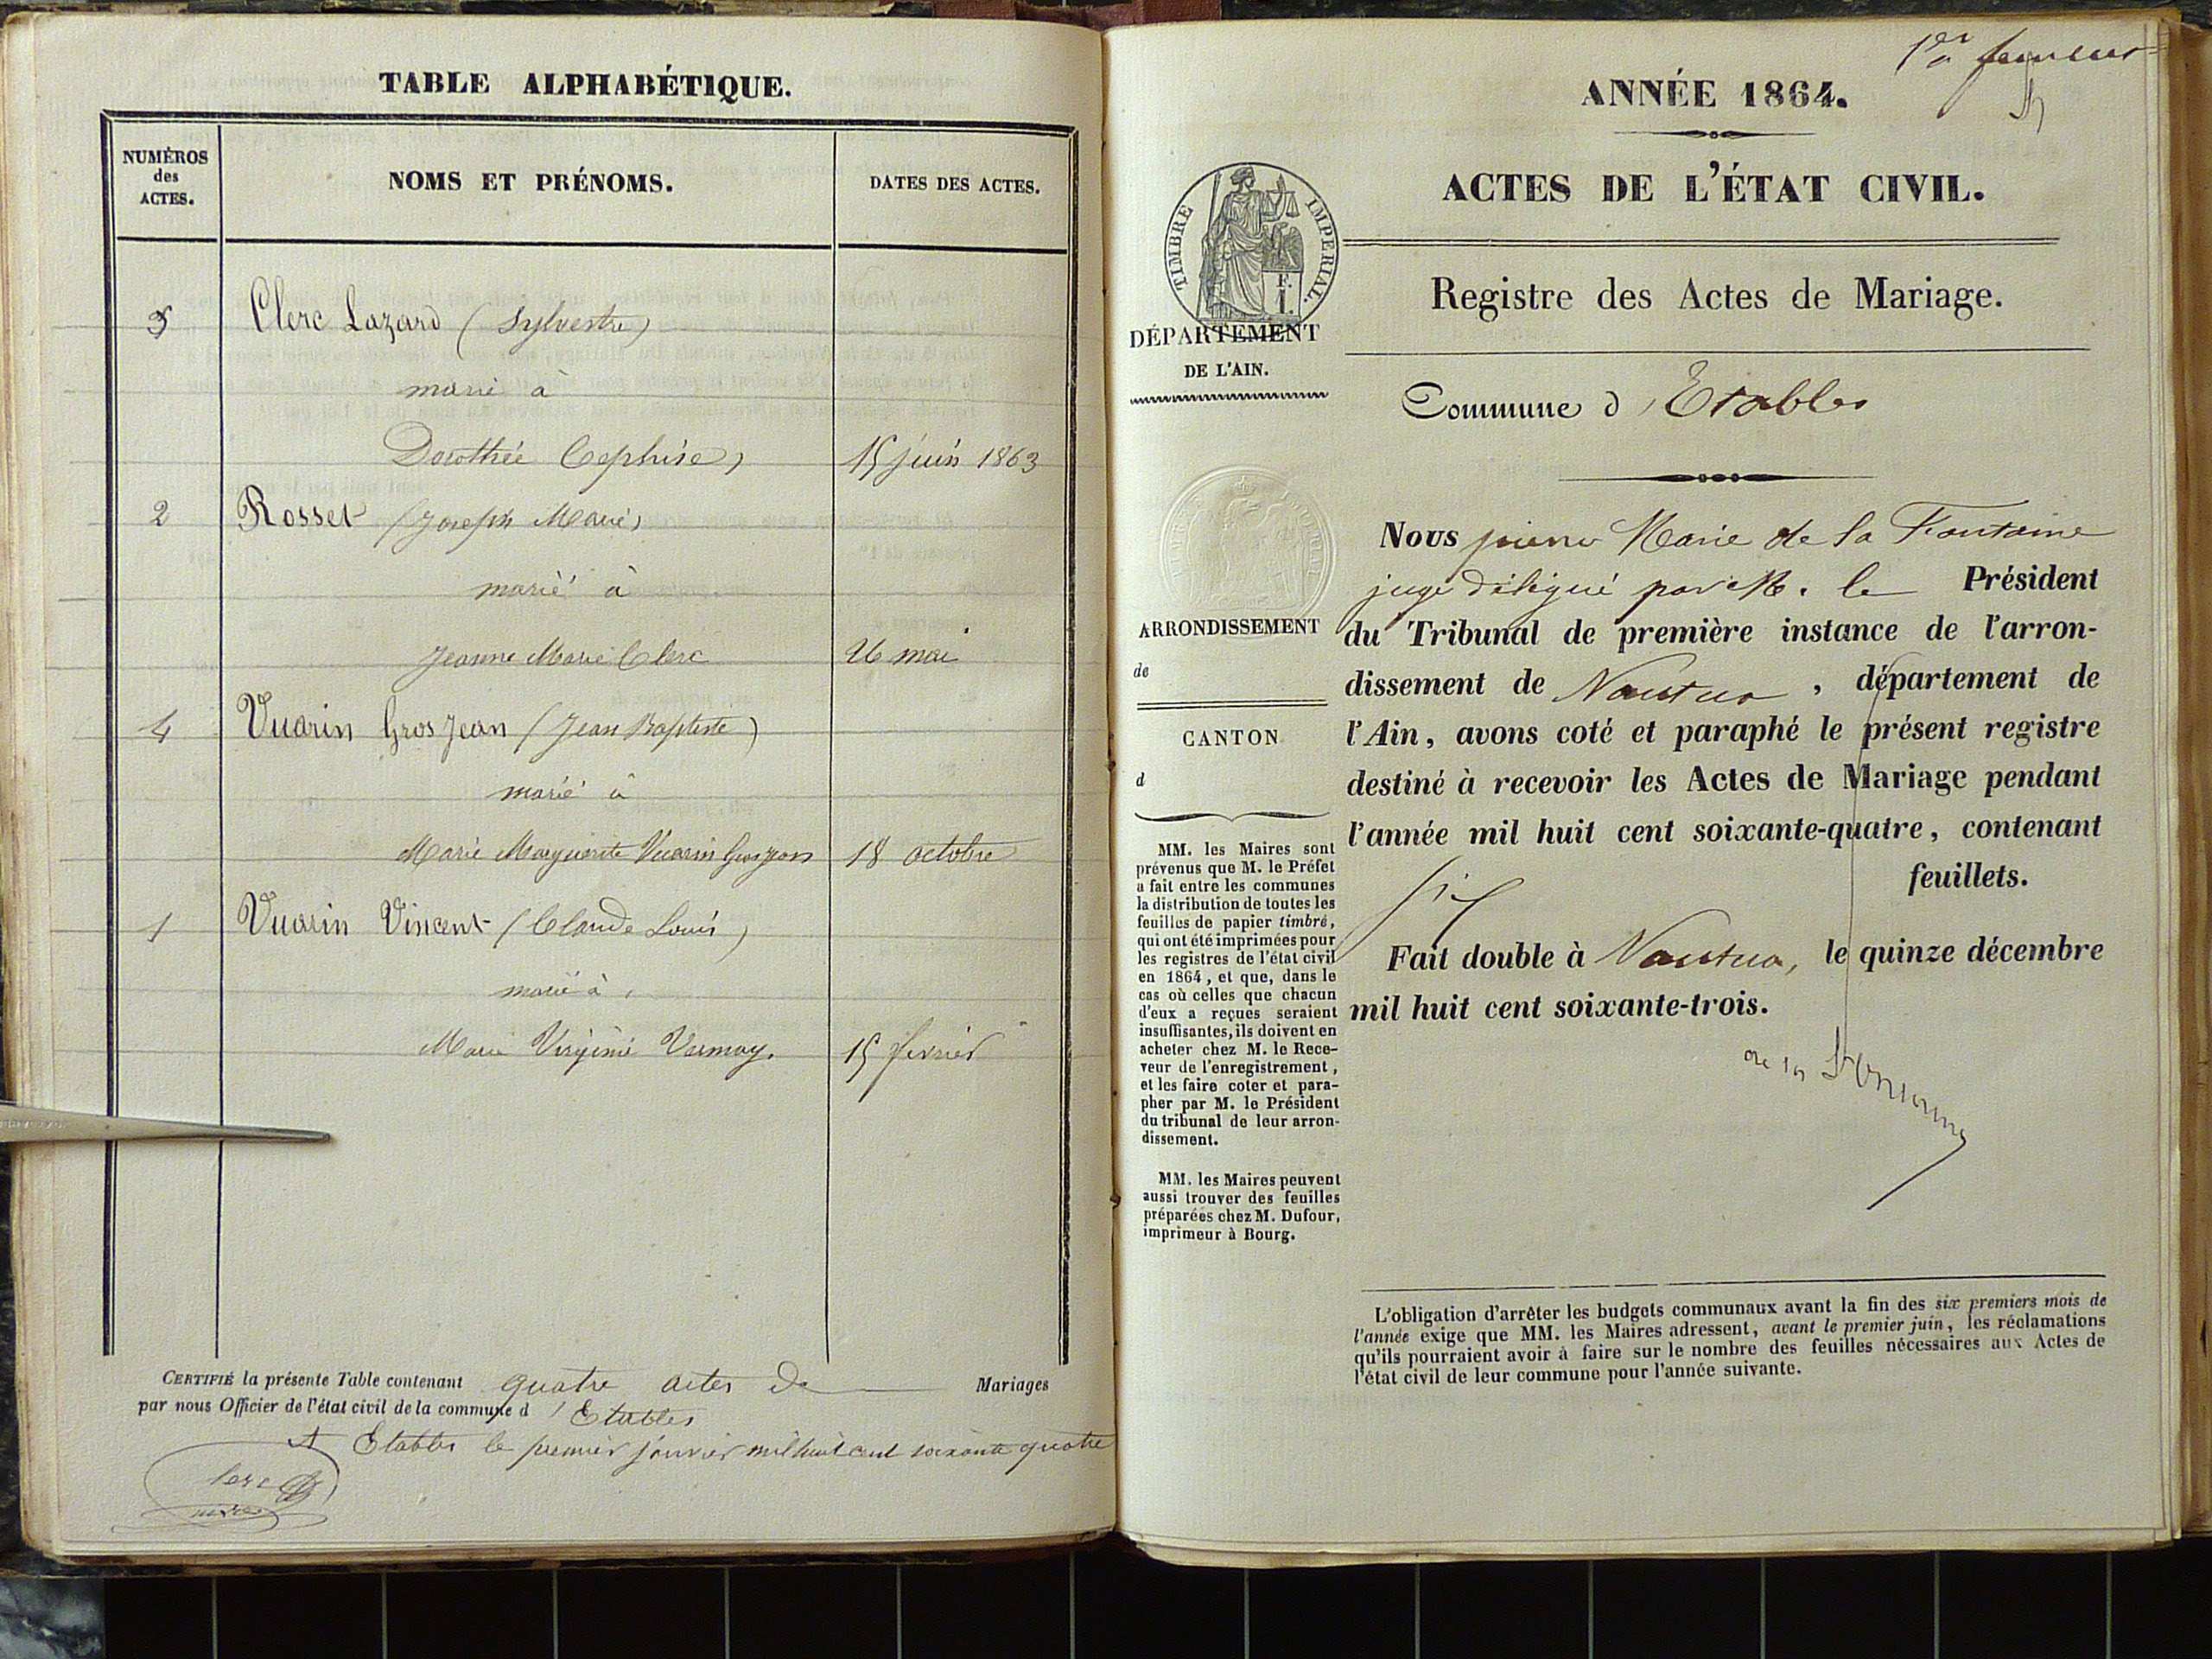 TABLE ALPHABÉTIQUE.
NUMÉROS
des
ACTES.
NOMS ET PRÉNOMS.
DATES DES ACTES.
3 Clerc Lazard (Sylvestre)
marié à
Dorothée Cephise) 15 juin 1863
2 Rosset (Joseph Marie)
marié à
Jeanne Marie Clerc 26 mai
4 Vuarin Gros Jean (Jean Baptiste)
marié à
Marie Marguerite Vuarin Gros jean 18 octobre
1 Vuarin Vincent (Claude Louis)
marié à
Marie Virginie Vermay. 15 fevrier
CERTIFIÉ la présente Table contenant quatre actes de Mariages
par nous Officier de l'état civil de la commune d'Etables
A Etables le premier janvier mil huit cent soixante quatre
1er
ANNÉE 1864.
ACTES DE L'ÉTAT CIVIL.
TIMBRE IMPERIAL.
F.
1.
DÉPARTEMENT
DE L'AIN.
Registre des Actes de Mariage.
Commune d'Etables
ARRONDISSEMENT
de
CANTON
d
Nous pierre Marie de la Fontaine
juge délégué par M. le Président
du Tribunal de première instance de l'arron-
dissement de Nantua, département de
l'Ain, avons coté et paraphé le présent registre
destiné à recevoir les Actes de Mariage pendant
l'année mil huit cent soixante-quatre, contenant
six feuillets.
Fait double à Nantua, le quinze décembre
mil huit cent soixante-trois.
de la Fontaine
MM. les Maires sont
prévenus que M. le Préfet
a fait entre les communes
la distribution de toutes les
feuilles de papier timbré,
qui ont été imprimées pour
les registres de l'état civil
en 1864, et que, dans le
cas où celles que chacun
d'eux a reçues seraient
insuffisantes, ils doivent en
acheter chez M. le Rece-
veur de l'enregistrement,
et les faire coter et para-
pher par M. le Président
du tribunal de leur arron-
dissement.
MM. les Maires peuvent
aussi trouver des feuilles
préparées chez M. Dufour,
imprimeur à Bourg.
L'obligation d'arrêter les budgets communaux avant la fin des six premiers mois de
l'année exige que MM. les Maires adressent, avant le premier juin, les réclamations
qu'ils pourraient avoir à faire sur le nombre des feuilles nécessaires aux Actes de
l'état civil de leur commune pour l'année suivante.